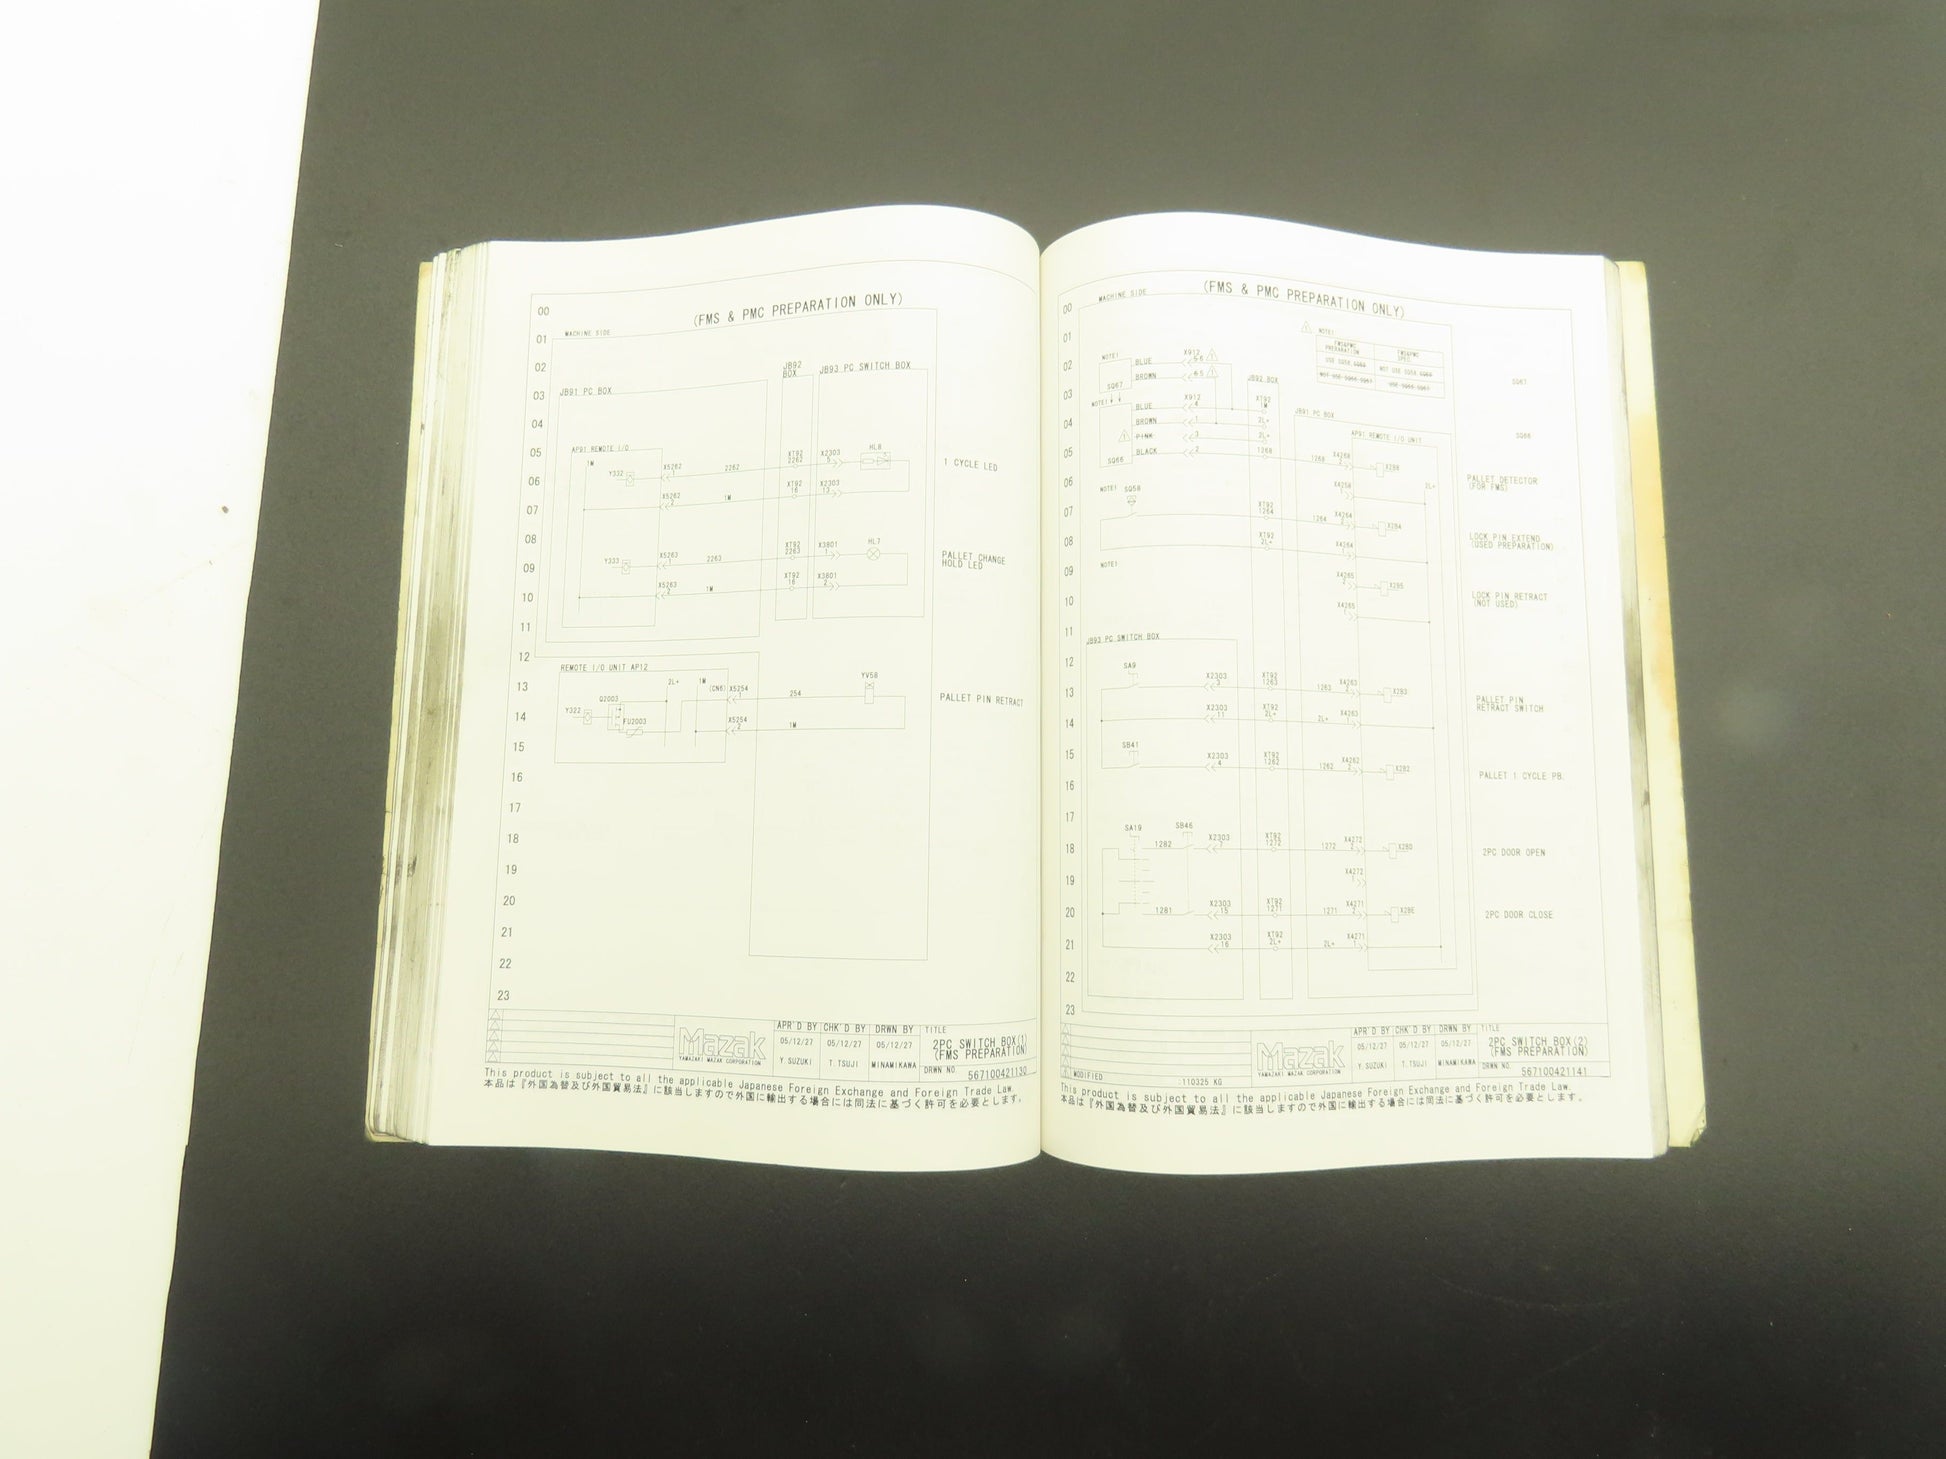 (FMS & PMC PREPARATION ONLY)
00
MACHINE SIDE
01
02
JB92
BOX
JB93 PC SWITCH BOX
03
JB91 PC BOX
04
AP91 REMOTE I/O
05
1M
Y332
X5262
1
2262
XT92
2262
X2303
5
HL8
1 CYCLE LED
06
X5262
2
1M
XT92
16
X2303
13
07
08
Y333
X5263
1
2263
XT92
2263
X3801
1
HL7
PALLET CHANGE
HOLD LED
09
X5263
2
1M
XT92
16
X3801
2
10
11
12
REMOTE I/O UNIT AP12
13
2L+
1M
(CN6)
X5254
1
254
YV58
PALLET PIN RETRACT
Q2003
Y322
FU2003
14
X5254
2
1M
15
16
17
18
19
20
21
22
23
Mazak
YAMAZAKI MAZAK CORPORATION
APR'D BY
CHK'D BY
DRWN BY
05/12/27
05/12/27
05/12/27
Y.SUZUKI
T.TSUJI
MINAMIKAWA
TITLE
2PC SWITCH BOX(1)
(FMS PREPARATION)
DRWN NO.
567100421130
This product is subject to all the applicable Japanese Foreign Exchange and Foreign Trade Law.
本品は『外国為替及び外国貿易法』に該当しますので外国に輸出する場合には同法に基づく許可を必要とします。
(FMS & PMC PREPARATION ONLY)
00
MACHINE SIDE
01
NOTE1
FMS&PMC
PREPARATION
FMS&PMC
SPEC.
USE SQ58,SQ60
NOT USE
02
NOTE1
BLUE
X912
BROWN
SQ67
JB92 BOX
SQ67
03
NOTE1
BLUE
X912
4
XT92
1M
JB91 PC BOX
04
BROWN
1
2L+
AP91 REMOTE I/O UNIT
SQ66
PINK
3
2L+
05
BLACK
2
1268
1268
X4268
2
X2B8
SQ66
PALLET DETECTOR
(FOR FMS)
06
NOTE1
SQ58
X4268
1
2L+
07
XT92
1264
1264
X4264
2
X2B4
LOCK PIN EXTEND
(USED PREPARATION)
08
XT92
2L+
X4264
1
09
NOTE1
X4265
2
X2B5
LOCK PIN RETRACT
(NOT USED)
10
X4265
1
11
JB93 PC SWITCH BOX
12
SA9
13
X2303
3
XT92
1263
1263
X4263
2
X2B3
PALLET PIN
RETRACT SWITCH
14
X2303
11
XT92
2L+
2L+
X4263
1
15
SB41
X2303
4
XT92
1262
1262
X4262
2
X2B2
PALLET 1 CYCLE PB.
16
17
SA19
SB46
18
1282
X2303
7
XT92
1272
1272
X4272
2
X2BD
2PC DOOR OPEN
19
X4272
1
20
1281
X2303
15
XT92
1271
1271
X4271
2
X2BE
2PC DOOR CLOSE
21
X2303
16
XT92
2L+
2L+
X4271
1
22
23
MODIFIED
:110325 KG
Mazak
YAMAZAKI MAZAK CORPORATION
APR'D BY
CHK'D BY
DRWN BY
05/12/27
05/12/27
05/12/27
Y.SUZUKI
T.TSUJI
MINAMIKAWA
TITLE
2PC SWITCH BOX(2)
(FMS PREPARATION)
DRWN NO.
567100421141
This product is subject to all the applicable Japanese Foreign Exchange and Foreign Trade Law.
本品は『外国為替及び外国貿易法』に該当しますので外国に輸出する場合には同法に基づく許可を必要とします。